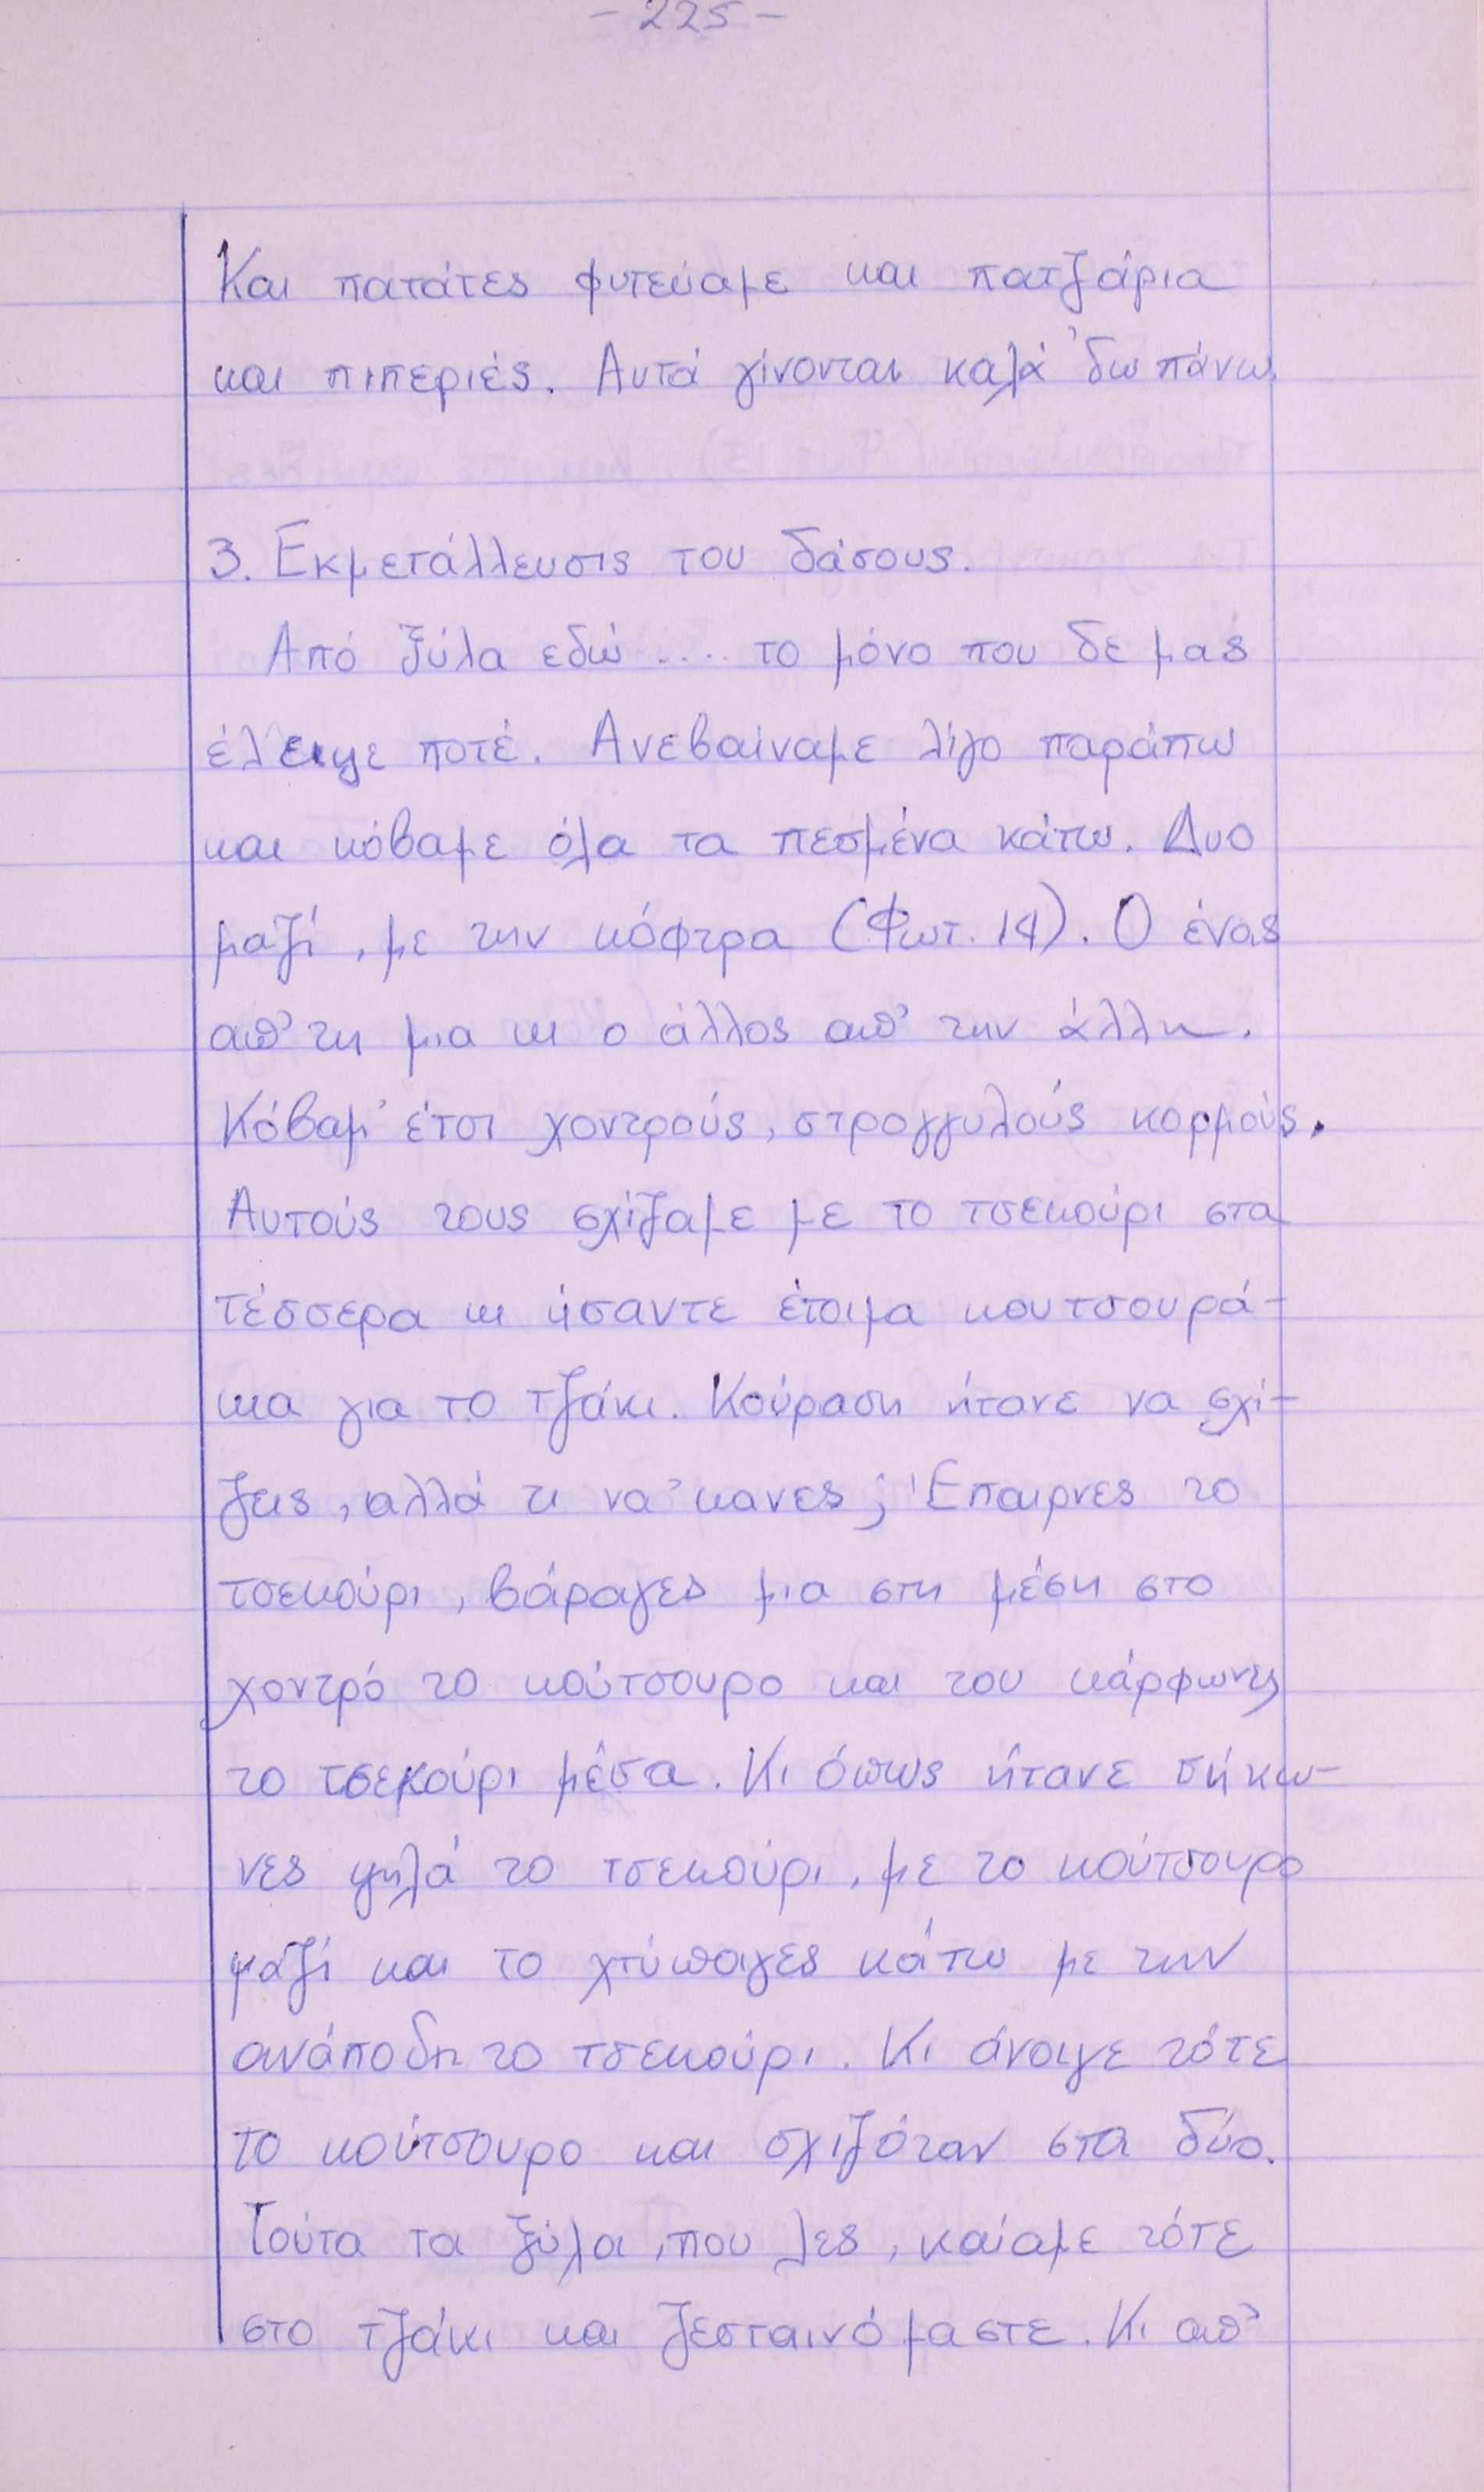 - 225 -
Και πατάτες φυτεύαμε και πατζάρια
και πιπεριές. Αυτά γίνονται καλά 'δω πάνω.
3. Εκμετάλλευσις του δάσους.
Από ξύλα εδώ .... το μόνο που δε μας
έλειψε ποτέ. Ανεβαίναμε λίγο παράπω
και κόβαμε όλα τα πεσμένα κάτω. Δυο
μαζί, με την κόφτρα (Φωτ. 14). Ο ένας
απ' τη μια κι ο άλλος απ' την άλλη.
Κόβαμ' έτσι χοντρούς, στρογγυλούς κορμούς.
Αυτούς τους σχίζαμε με το τσεκούρι στα
τέσσερα κι ήσαντε έτοιμα κουτσουρά-
κια για το τζάκι. Κούραση ήτανε να σχί-
ζεις, αλλά τι να 'κανες; Έπαιρνες το
τσεκούρι, βάραγες μια στη μέση στο
χοντρό το κούτσουρο και του κάρφωνες
το τσεκούρι μέσα. Κι όπως ήτανε σήκω-
νες ψηλά το τσεκούρι, με το κούτσουρο
μαζί και το χτύπαγες κάτω με την
ανάποδη το τσεκούρι. Κι άνοιγε τότε
το κούτσουρο και σχιζόταν στα δύο.
Τούτα τα ξύλα, που λες, καίαμε τότε
στο τζάκι και ζεσταινόμαστε. Κι απ'